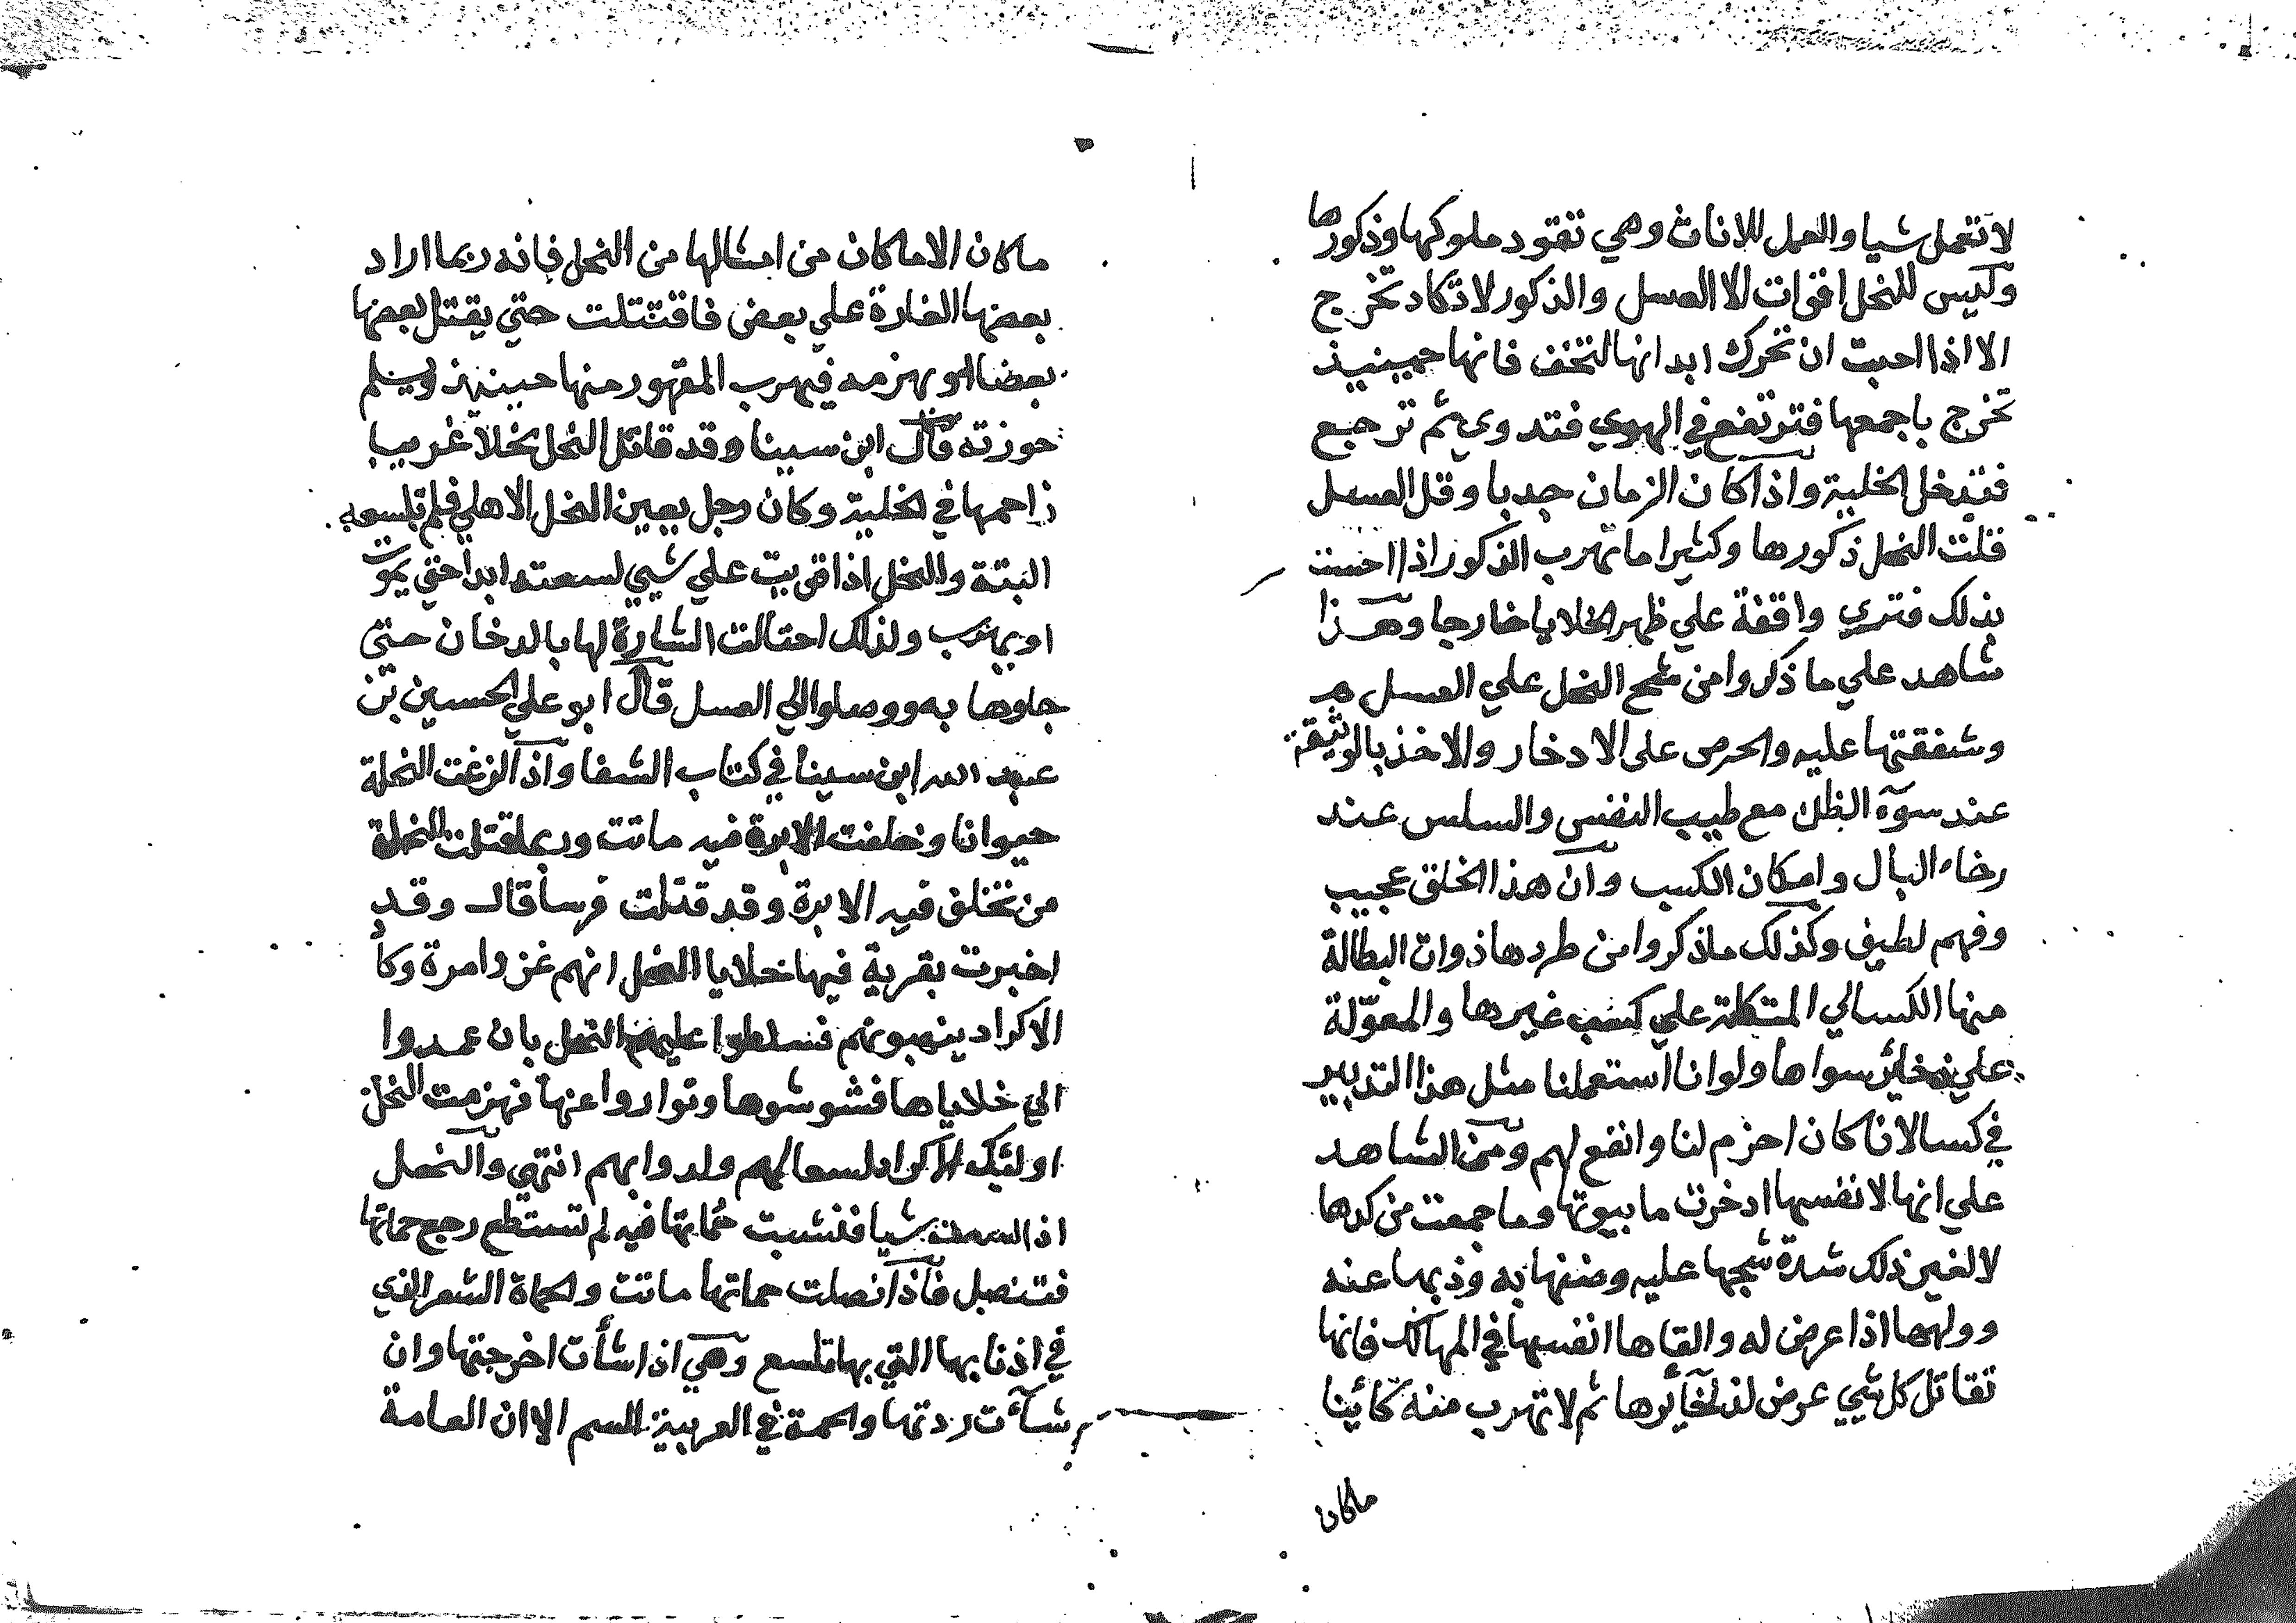 لا تعمل شيا والعمل للاناث وهي تقود ملوكها وذكورها
وليس للنحل اقوات الا العسل والذكور لا تكاد تخرج
الا اذا احبت ان تحرك ابدانها لتخف فانها حينيذ
تخرج باجمعها فترتفع في الهوي فتدوي ثم ترجع
فتدخل الخلية واذا كان الزمان جدبا وقل العسل
قتلت النحل ذكورها وكثيرا ما تهرب الذكور اذا احست
بذلك فتري واقفة علي ظهر الخلايا خارجا وهذا
شاهد علي ما ذكروا من شح النحل علي العسل
وشفقتها عليه والحرص علي الادخار والاخذ بالوثيقة
عند سوء الظن مع طيب النفس والسلس عند
رخاء البال وامكان الكسب وان هذا الخلق عجيب
وفهم لطيف وكذلك ما ذكروا من طردها ذوات البطالة
منها الكسالي المتكلة علي كسب غيرها والمعوّلة
علي ذخاير سواها ولو انا استعملنا مثل هذا التدبير
في كسالانا كان احزم لنا وانفع لهم ومن الشاهد
علي انها لا نفسها ادخرت ما بيوتها وما جمعت من كدها
لا لغير ذلك شدة شحها عليه وضنها به وذبها عنه
وولهها اذا عرض له والقاها انفسها في المهالك فانها
تقاتل كل شيي عرض لذخآئرها ثم لا تهرب منه كائنا
ماكان
ماكان الا ماكان من امثالها من النحل فانه ربما اراد
بعضها الغارة علي بعض فاقتتلت حتي يقتل بعضها
بعضا او يهزمه فيهرب المقهور منها حينيذ ويسلم
حوزته قال ابن سينا وقد قاتل النحل نحلا غريبا
زاحمها في الخلية وكان رجل يعين النحل الاهلي فلم تلسعه
البتة والنحل اذا قربت علي شيي لسعته ابدا حتي يموت
او يهرب ولذلك احتالت الشارة لها بالدخان حتي
جلوها به ووصلوا الي العسل قال ابو علي الحسين بن
عبد الله ابن سينا في كتاب الشفا واذا لزغت النحلة
حيوانا وخلفت الابرة فيه ماتت وربما قتلت النحلة
من تخلف فيه الابرة وقد قتلت فرسا قال وقد
اخبرت بقرية فيها خلايا النحل انهم غزوا مرة وكا
الاكراد ينهبونهم فسلطوا عليهم النحل بان عمدوا
الي خلاياها فشوشوها وتواروا عنها فهزمت النحل
اولئك الاكراد لسعا لهم ولدوابهم انتهي والنحل
اذا لسعت شيا فنشبت حُماتها فيه لم تستطع رجع حماتها
فتنصل فاذا نصلت حماتها ماتت والحماة الشعر الذي
في اذنابها التي بها تلسع وهي اذا شأت اخرجتها وان
شآءت ردتها والحمة في العربية السم الا ان العامة